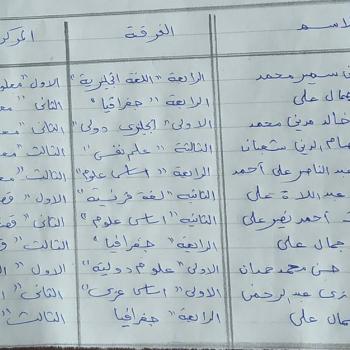 الاسم الفرقة المركز
سمير محمد الرابعة "اللغة انجليزية" الاول "معلو
جمال على الرابعة "جغرافيا" الثانى "مع
خالد مدينى محمد الاولى "انجلزى دولى" الثانى "مع
الدين شعبان الثالثة "علم نفس" الثالث "مع
عبد الناصر على احمد الرابعة "اساسى علوم" الثالث "مع
عبد اللاه على الثانيه "لغة فرنسية" الاول "قص
احمد نصر على الثانيه "اساسى علوم" الثانى "قص
جمال على الرابعة "جغرافيا" الثالث "ق
حسن محمد حمدان الاولى "علوم دولية" الاول "ال
عبد الرحمن الاولى "اساسى عربى" الثانى "ا
جمال على الرابعة "جغرافيا" الثالث "